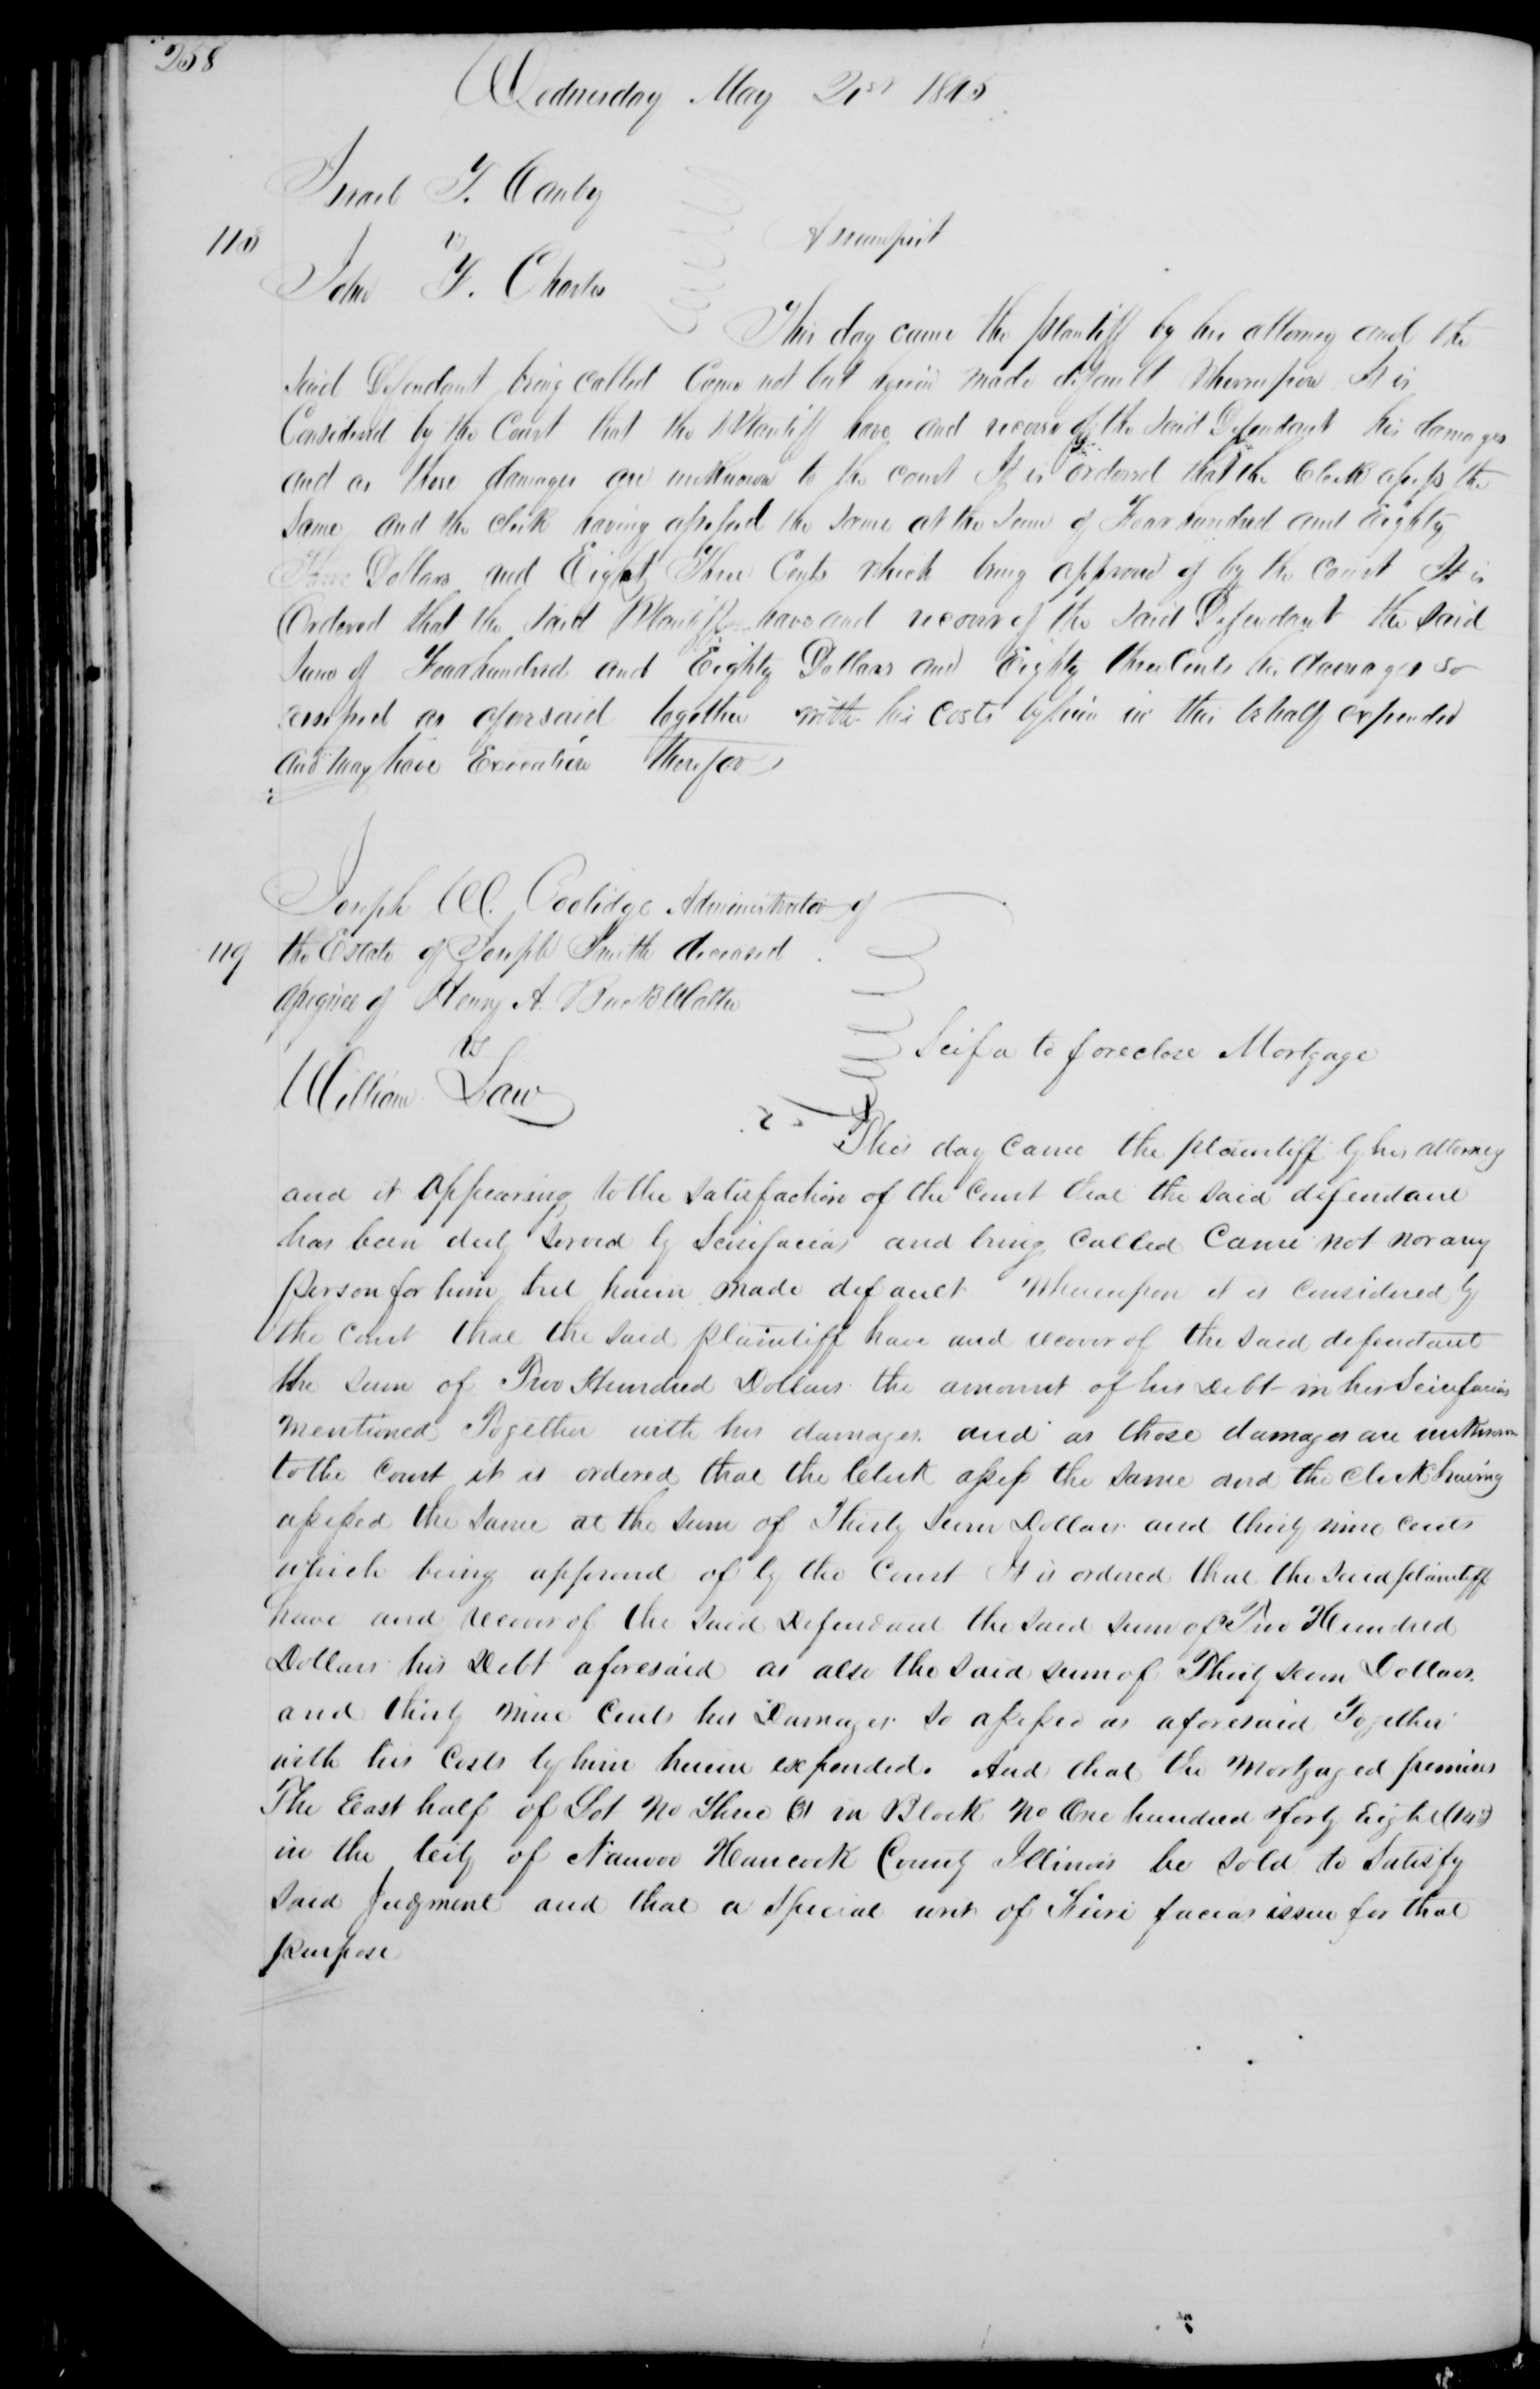 258
Wednesday May 21st 1845
Israel T. Canby
118 vs Assumpsit
John F. Charles
This day came the plantiff by his attorney and the
said Defendant being called Came not but herein made default Whereupon It is
Considered by the Court that the Plantiff have and recover of the said Defendant his damages
and as those damages are unknown to the court It is ordered that the Clerk assess the
same and the clerk having assessed the same at the sum of Four hundred and Eighty
Three Dollars and Eighty Three Cents which being approved of by the Court It is
Ordered that the said Plantiff have and recover of the said Defendant the said
sum of Four hundred and Eighty Dollars and Eighty three Cents his damages so
assessed as aforsaid together with his costs by him in this behalf expended
and may have Execution therefor
Joseph W. Coolidge Administrator of
119 the Estate of Joseph Smith deceased
assignee of Henry A. Buckwalter
vs Scifa to foreclose Mortgage
William Law
This day Came the plaintiff by his attorney
and it appearing to the satisfaction of the Court that the said defendant
has been duly served by Scirefacias and being Called Came not nor any
person for him but herein made default Whereupon it is considered by
the court that the said plaintiff have and recover of the said defendant
the sum of Two Hundred Dollars the amount of his Debt in his Scirefacias
mentioned Together with his damages and as those damages are unknown
to the court it is ordered that the Clerk assess the same and the clerk having
assessed the same at the sum of Thirty seven Dollars and thirty nine cents
which being approved of by the Court It is ordered that the said plaintiff
have and recover of the said Defendant the said sum of Two Hundred
Dollars his Debt aforesaid as also the said sum of Thirty seven Dollars
and thirty nine Cents his Damages so assessed as aforesaid Together
with his Costs by him herein expended. And that the Mortgaged premises
The East half of Lot No Three (3) in Block No One hundred & forty Eight (148)
in the City of Nauvoo Hancock County Illinois be sold to Satisfy
said Judgment and that a special writ of Fieri facias issue for that
purpose